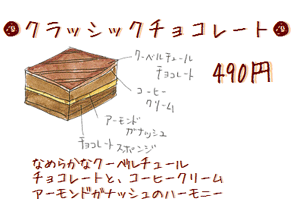 クラッシックチョコレート
490円
クーベルチュール
チョコレート
コーヒー
クリーム
アーモンド
ガナッシュ
チョコレート スポンジ
なめらかなクーベルチュール
チョコレートと、コーヒークリーム
アーモンドガナッシュのハーモニー